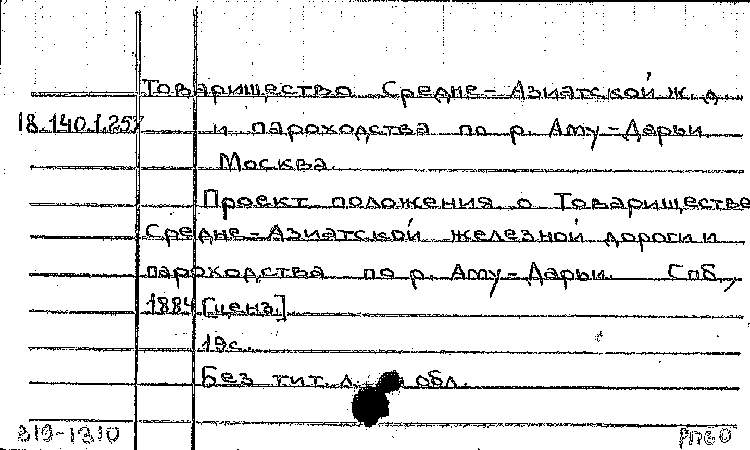 Товарищество Средне-Азиатской ж. д.
18.140.1.257 и пароходства по р. Аму-Дарьи
Москва.
Проект положения о Товариществе
Средне-Азиатской железной дороги и
пароходства по р. Аму-Дарьи. Спб,
1884 [ценз.]
19с.
Без тит. л. обл.
319-1310